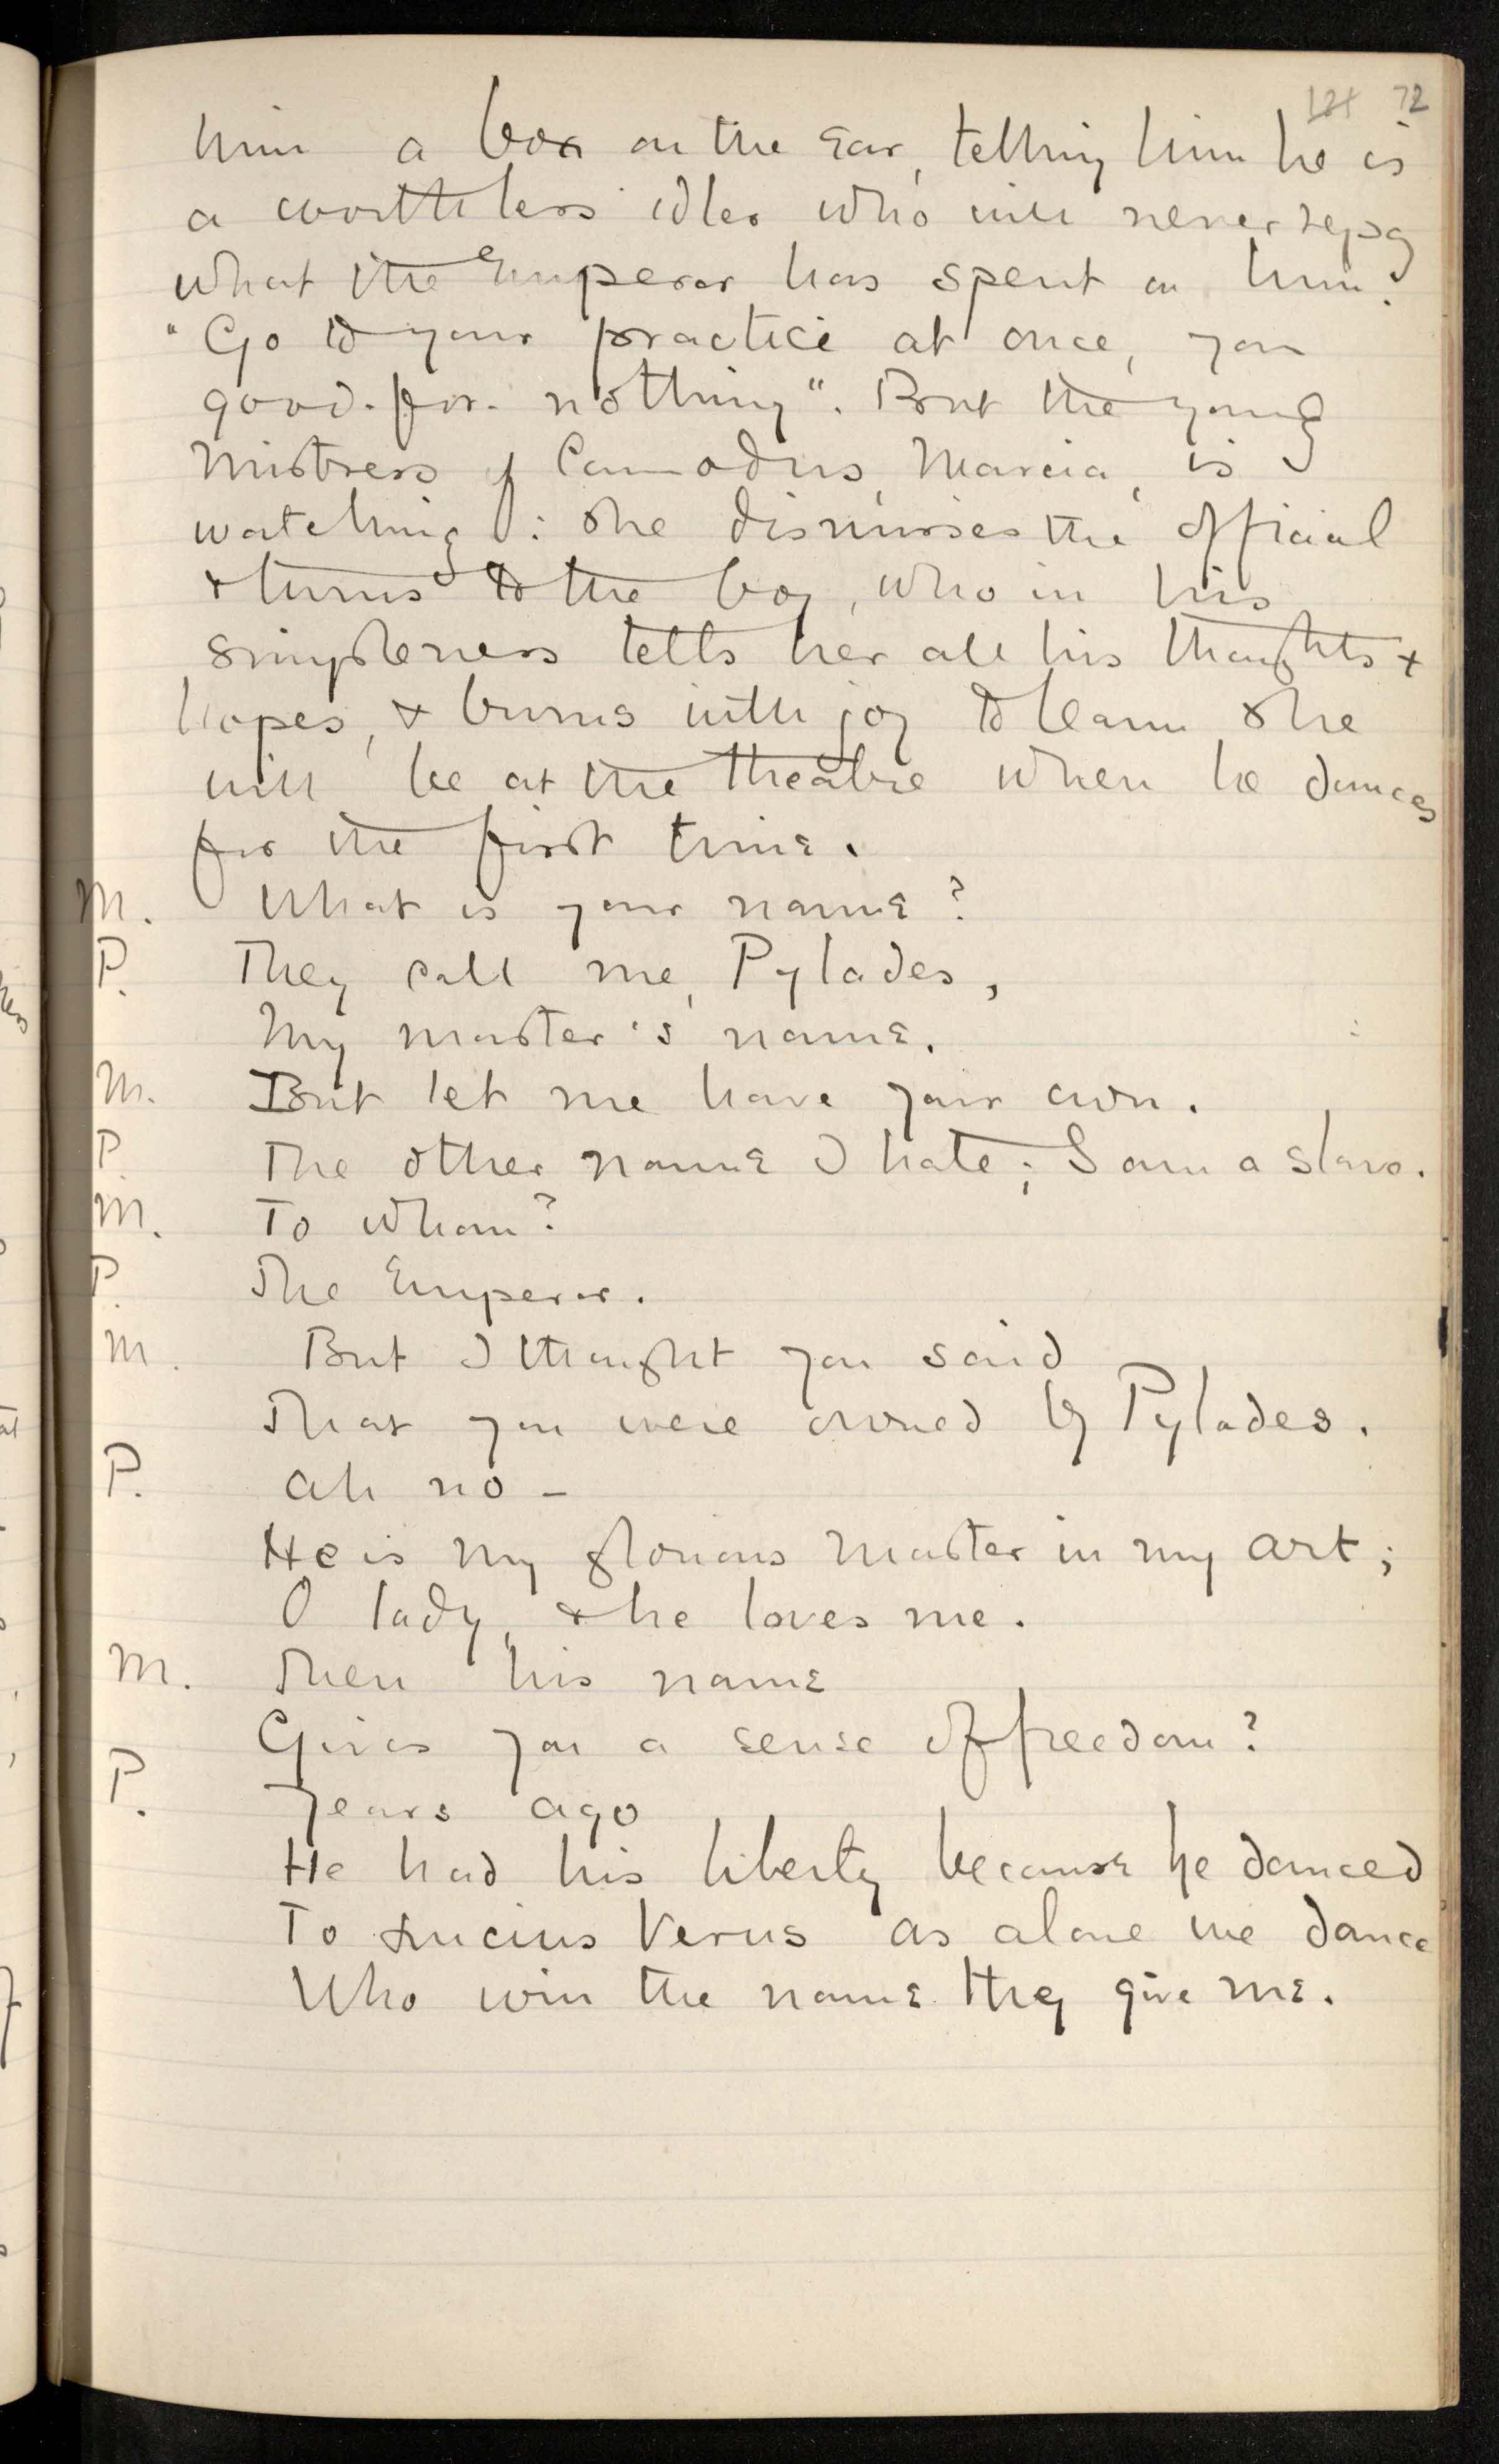 121 72
him a box on the ear, telling him he is
a worthless idler who will never repay
what the Emperor has spent on him.
"Go to your practice at once, you
good-for-nothing". But the young
mistress of Commodus, Marcia, is
watching: she dismisses the official
& turns to the boy, who in his
simpleness tells her all his thoughts &
hopes, & burns with joy to learn she
will be at the theatre when he dances
for the first time.
M. What is your name?
P. They call me, Pylades,
My master's name.
M. But let me have your own.
P. The other name I hate; I am a slave.
M. To whom?
P. The Emperor.
M. But I thought you said
That you were owned by Pylades.
P. Ah no –
He is my glorious master in my art;
O lady, & he loves me.
M. Then his name
Gives you a sense of freedom?
P. Years ago
He had his liberty because he danced
To Lucius Verus as alone we dance
Who win the name they give me.